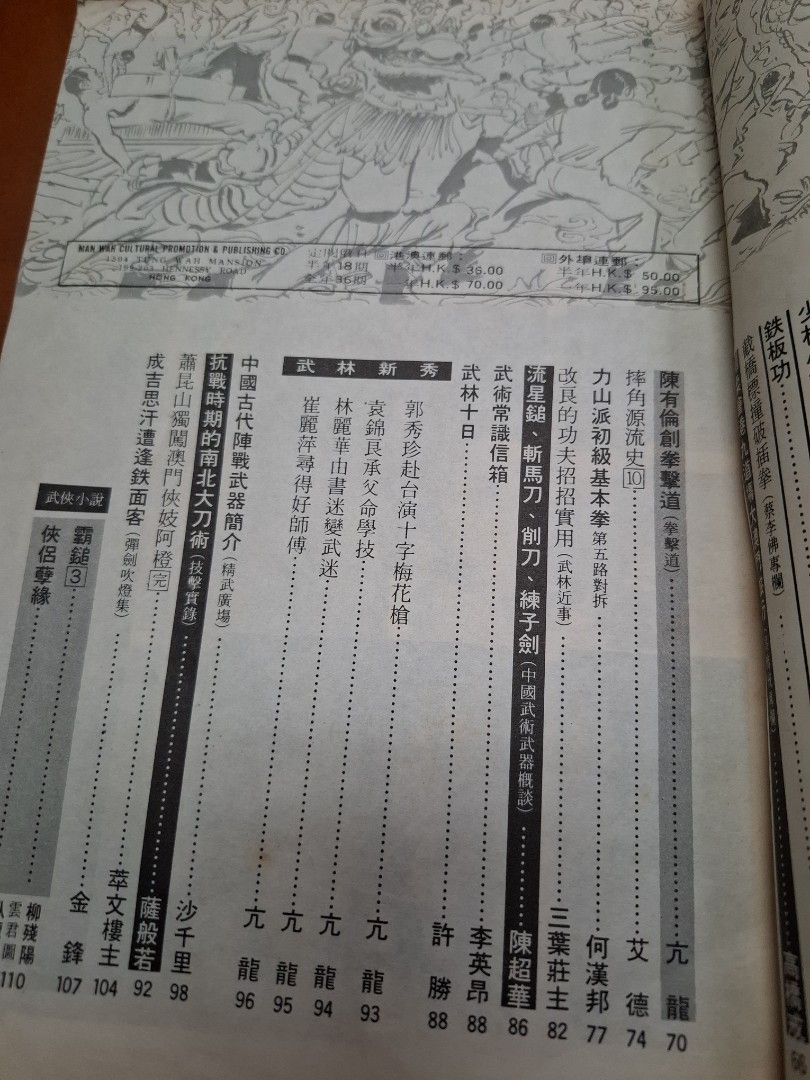 MAN WAH CULTURAL PROMOTION & PUBLISHING CO.
1504 TUNG WAH MANSION
199-203 HENNESSY ROAD
HONG KONG
定閱價目
半年18期
全年36期
港澳連郵：
半年H.K.$ 36.00
一年H.K.$ 70.00
外埠連郵：
半年H.K.$ 50.00
一年H.K.$ 95.00
鉄板功
截橋標撞破插拳(蔡李佛專欄)
陳有倫創拳擊道(拳擊道)……亢龍 70
摔角源流史10……艾德 74
力山派初級基本拳 第五路對拆……何漢邦 77
改良的功夫招招實用(武林近事)……三葉莊主 82
流星鎚、斬馬刀、削刀、練子劍(中國武術武器概談)……陳超華 86
武術常識信箱……李英昂 88
武林十日……許勝 88
武林新秀
郭秀珍赴台演十字梅花槍……亢龍 93
袁錦良承父命學技……亢龍 94
林麗華由書迷變武迷……亢龍 95
崔麗萍尋得好師傅……亢龍 96
中國古代陣戰武器簡介(精武廣場)……沙千里 98
抗戰時期的南北大刀術(技擊實錄)……薩般若 92
蕭昆山獨闖澳門俠妓阿橙完
成吉思汗遭逢鉄面客(彈劍吹燈集)……萃文樓主 104
武俠小說
霸鎚3……金鋒 107
俠侶孽緣……柳殘陽
雲君圖
110